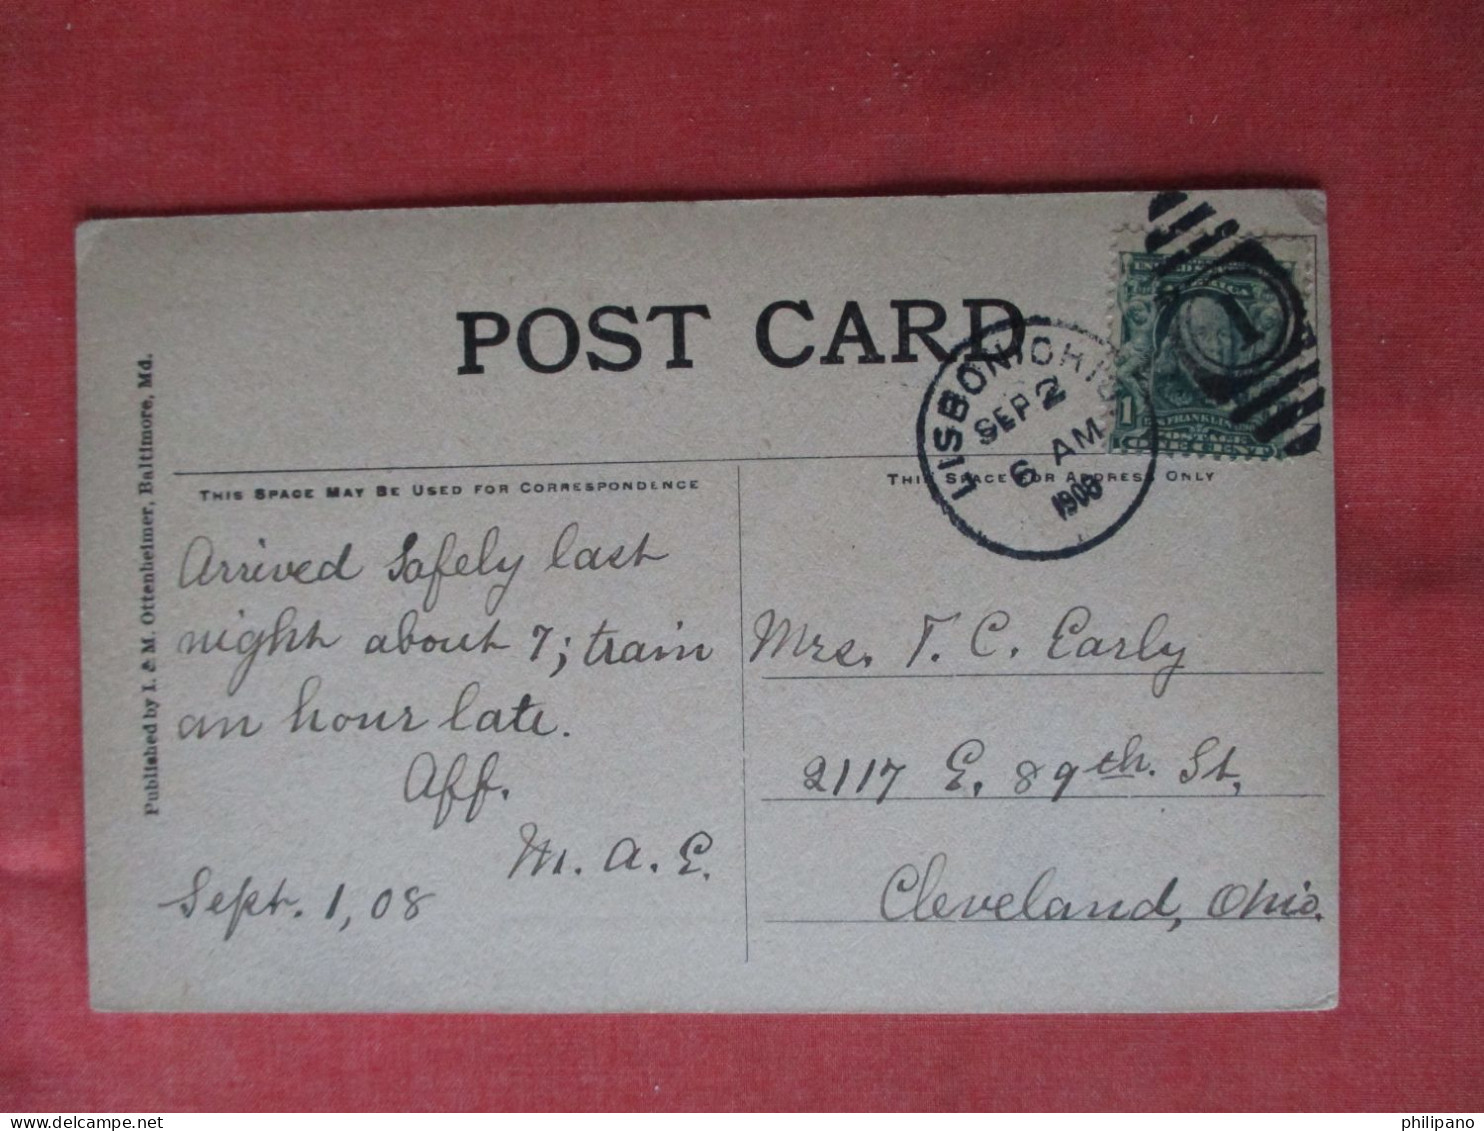 POST CARD
LISBON, OHIO
SEP 2
6 AM
1908
UNITED STATES OF AMERICA
1
FRANKLIN
POSTAGE
ONE CENT
1
THIS SPACE MAY BE USED FOR CORRESPONDENCE
THIS SPACE FOR ADDRESS ONLY
Published by I. & M. Ottenheimer, Baltimore, Md.
Arrived safely last
night about 7; train
an hour late.
Aff.
M. A. E.
Sept. 1, 08
Mrs. T. C. Early
2117 E. 89th. St,
Cleveland, Ohio.
philipano
delcampe.net